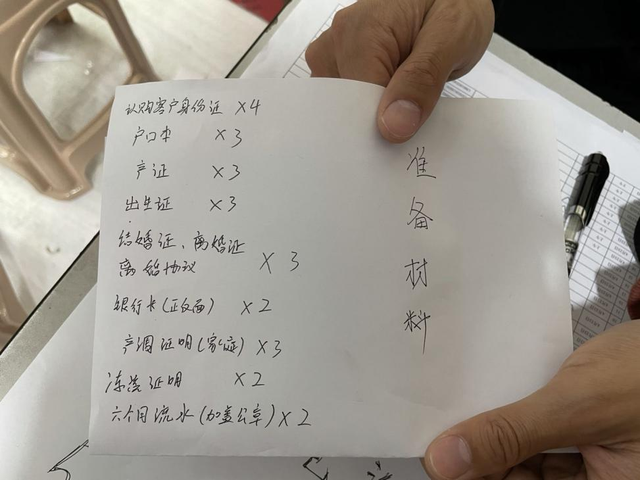 认购客户身份证 ×4
户口本 ×3
产证 ×3
出生证 ×3
结婚证、离婚证
离婚协议 ×3
银行卡(正反面) ×2
产调证明(家庭) ×3
冻资证明 ×2
六个月流水(加盖公章)×2
准备材料